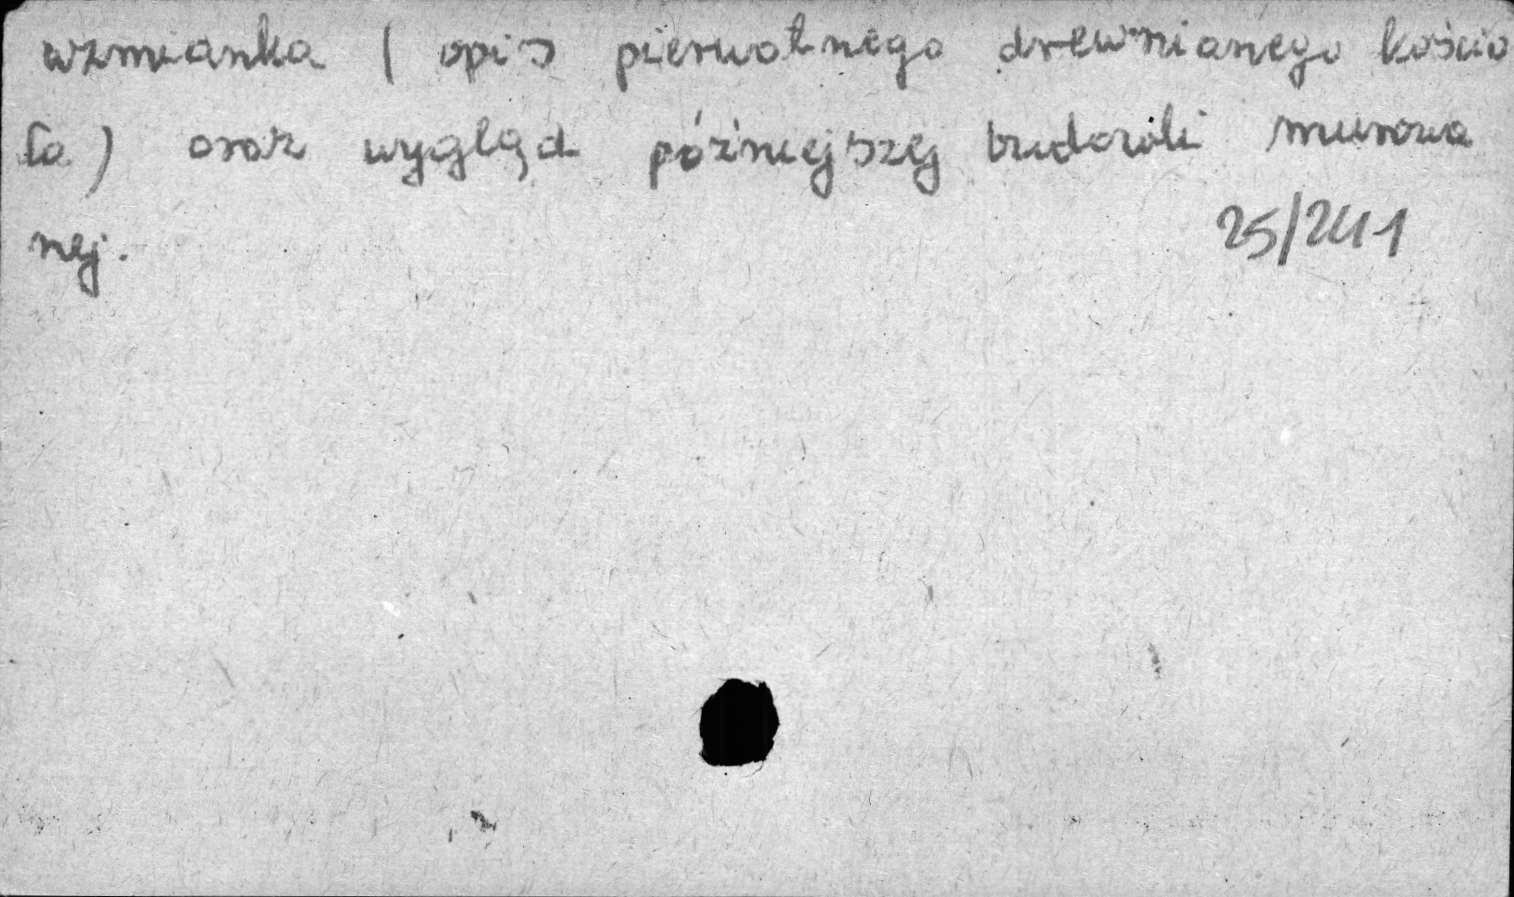 wzmianka ( opis pierwotnego drewnianego kościo
ła ) oraz wygląd późniejszej budowli murowa
nej.
25/2411